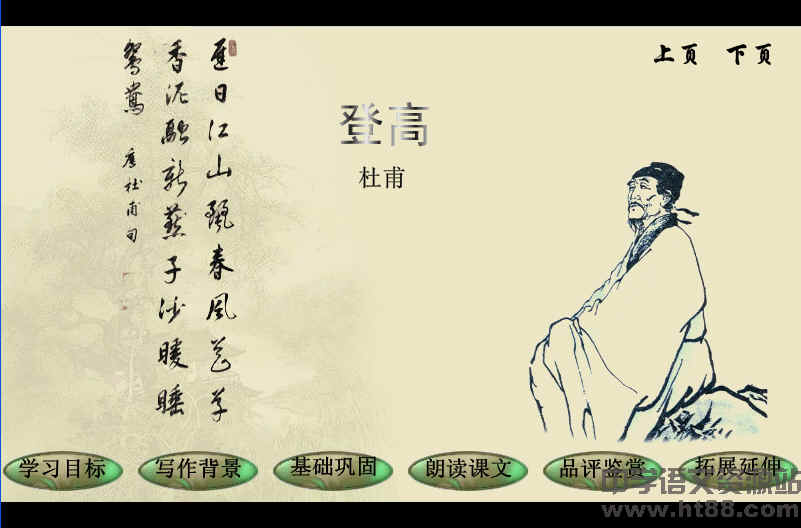 上页 下页
遲日江山麗春風花草
香泥融飛燕子沙暖睡
鴛鴦 唐杜甫句
登高
杜甫
学习目标 写作背景 基础巩固 朗读课文 品评鉴赏 拓展延伸
中学语文资源站
www.ht88.com